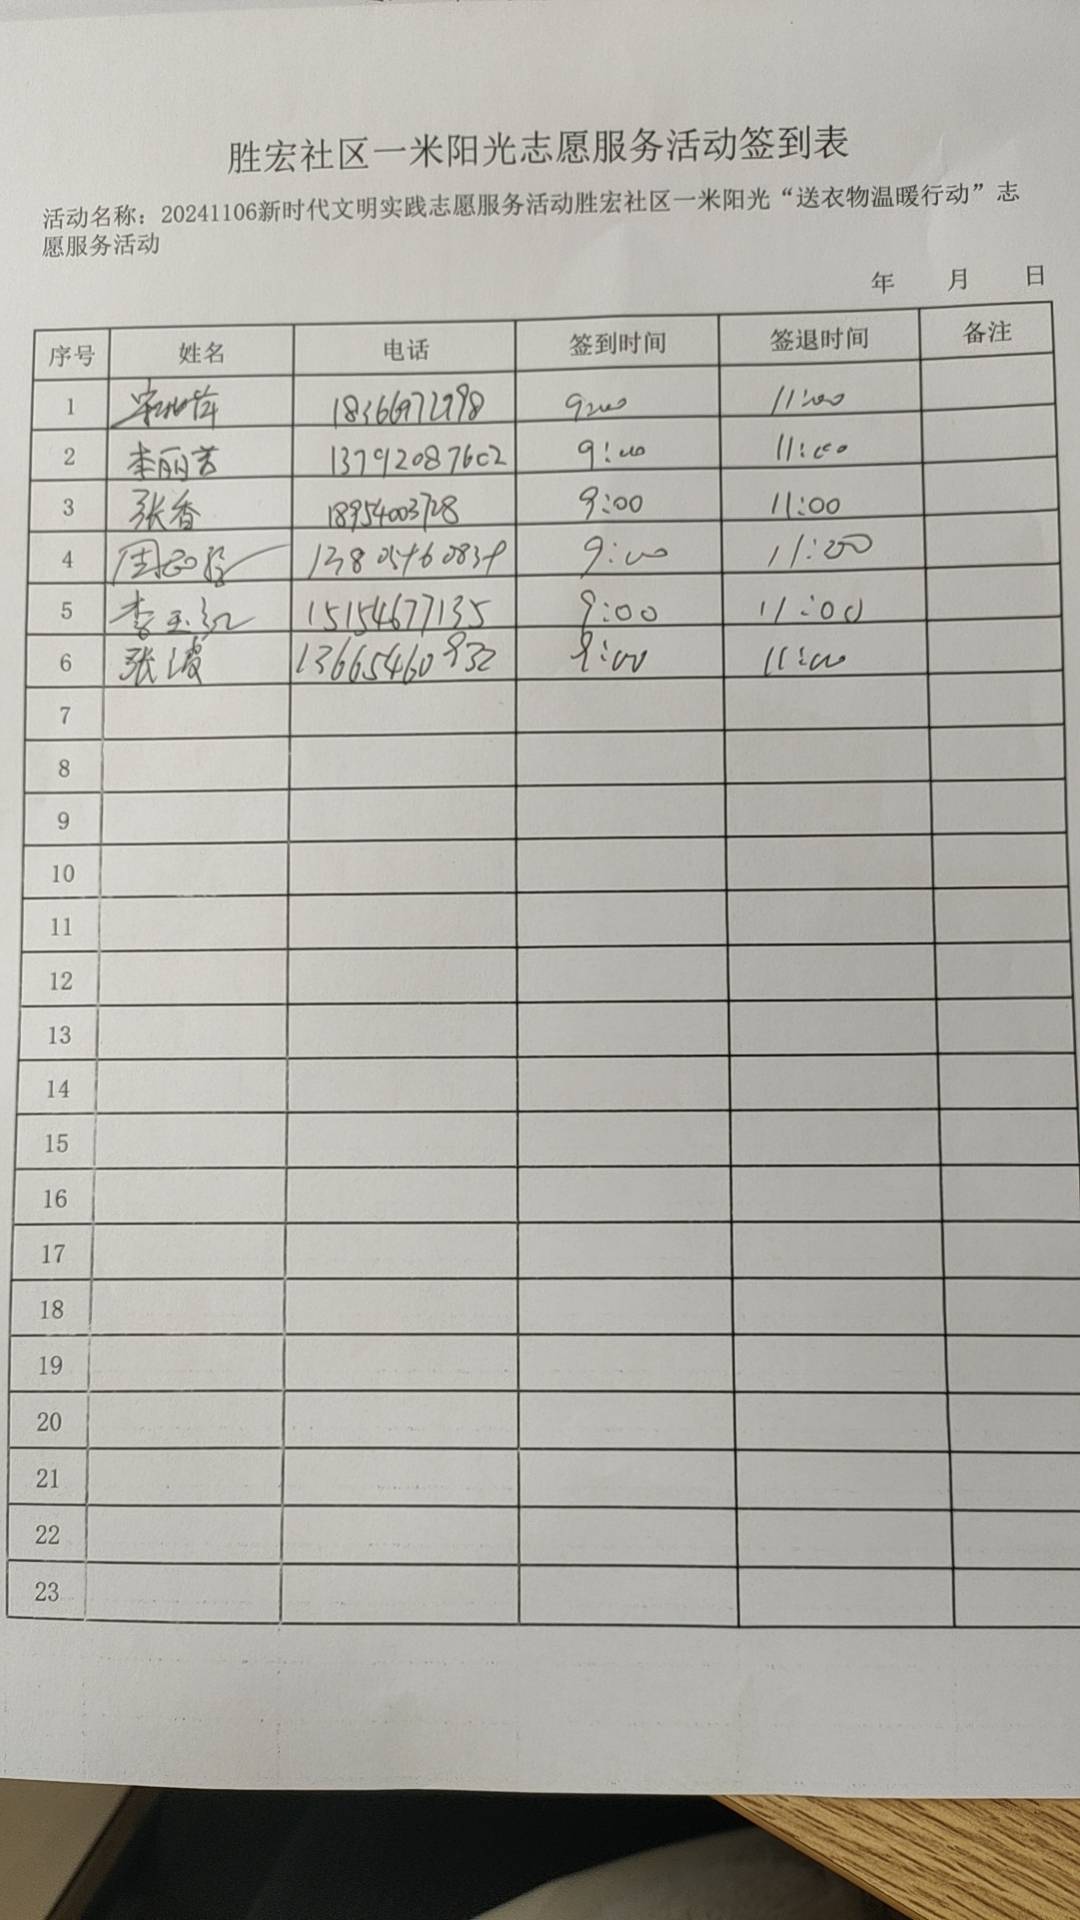 胜宏社区一米阳光志愿服务活动签到表
活动名称：20241106新时代文明实践志愿服务活动胜宏社区一米阳光“送衣物温暖行动”志
愿服务活动
年 月 日
序号 姓名 电话 签到时间 签退时间 备注
1 9:00 11:00
2 李丽芳 13792087602 9:00 11:00
3 张香 18954003728 9:00 11:00
4 9:00 11:00
5 李玉红 15154677135 9:00 11:00
6 张波 13665460932 9:00 11:00
7
8
9
10
11
12
13
14
15
16
17
18
19
20
21
22
23